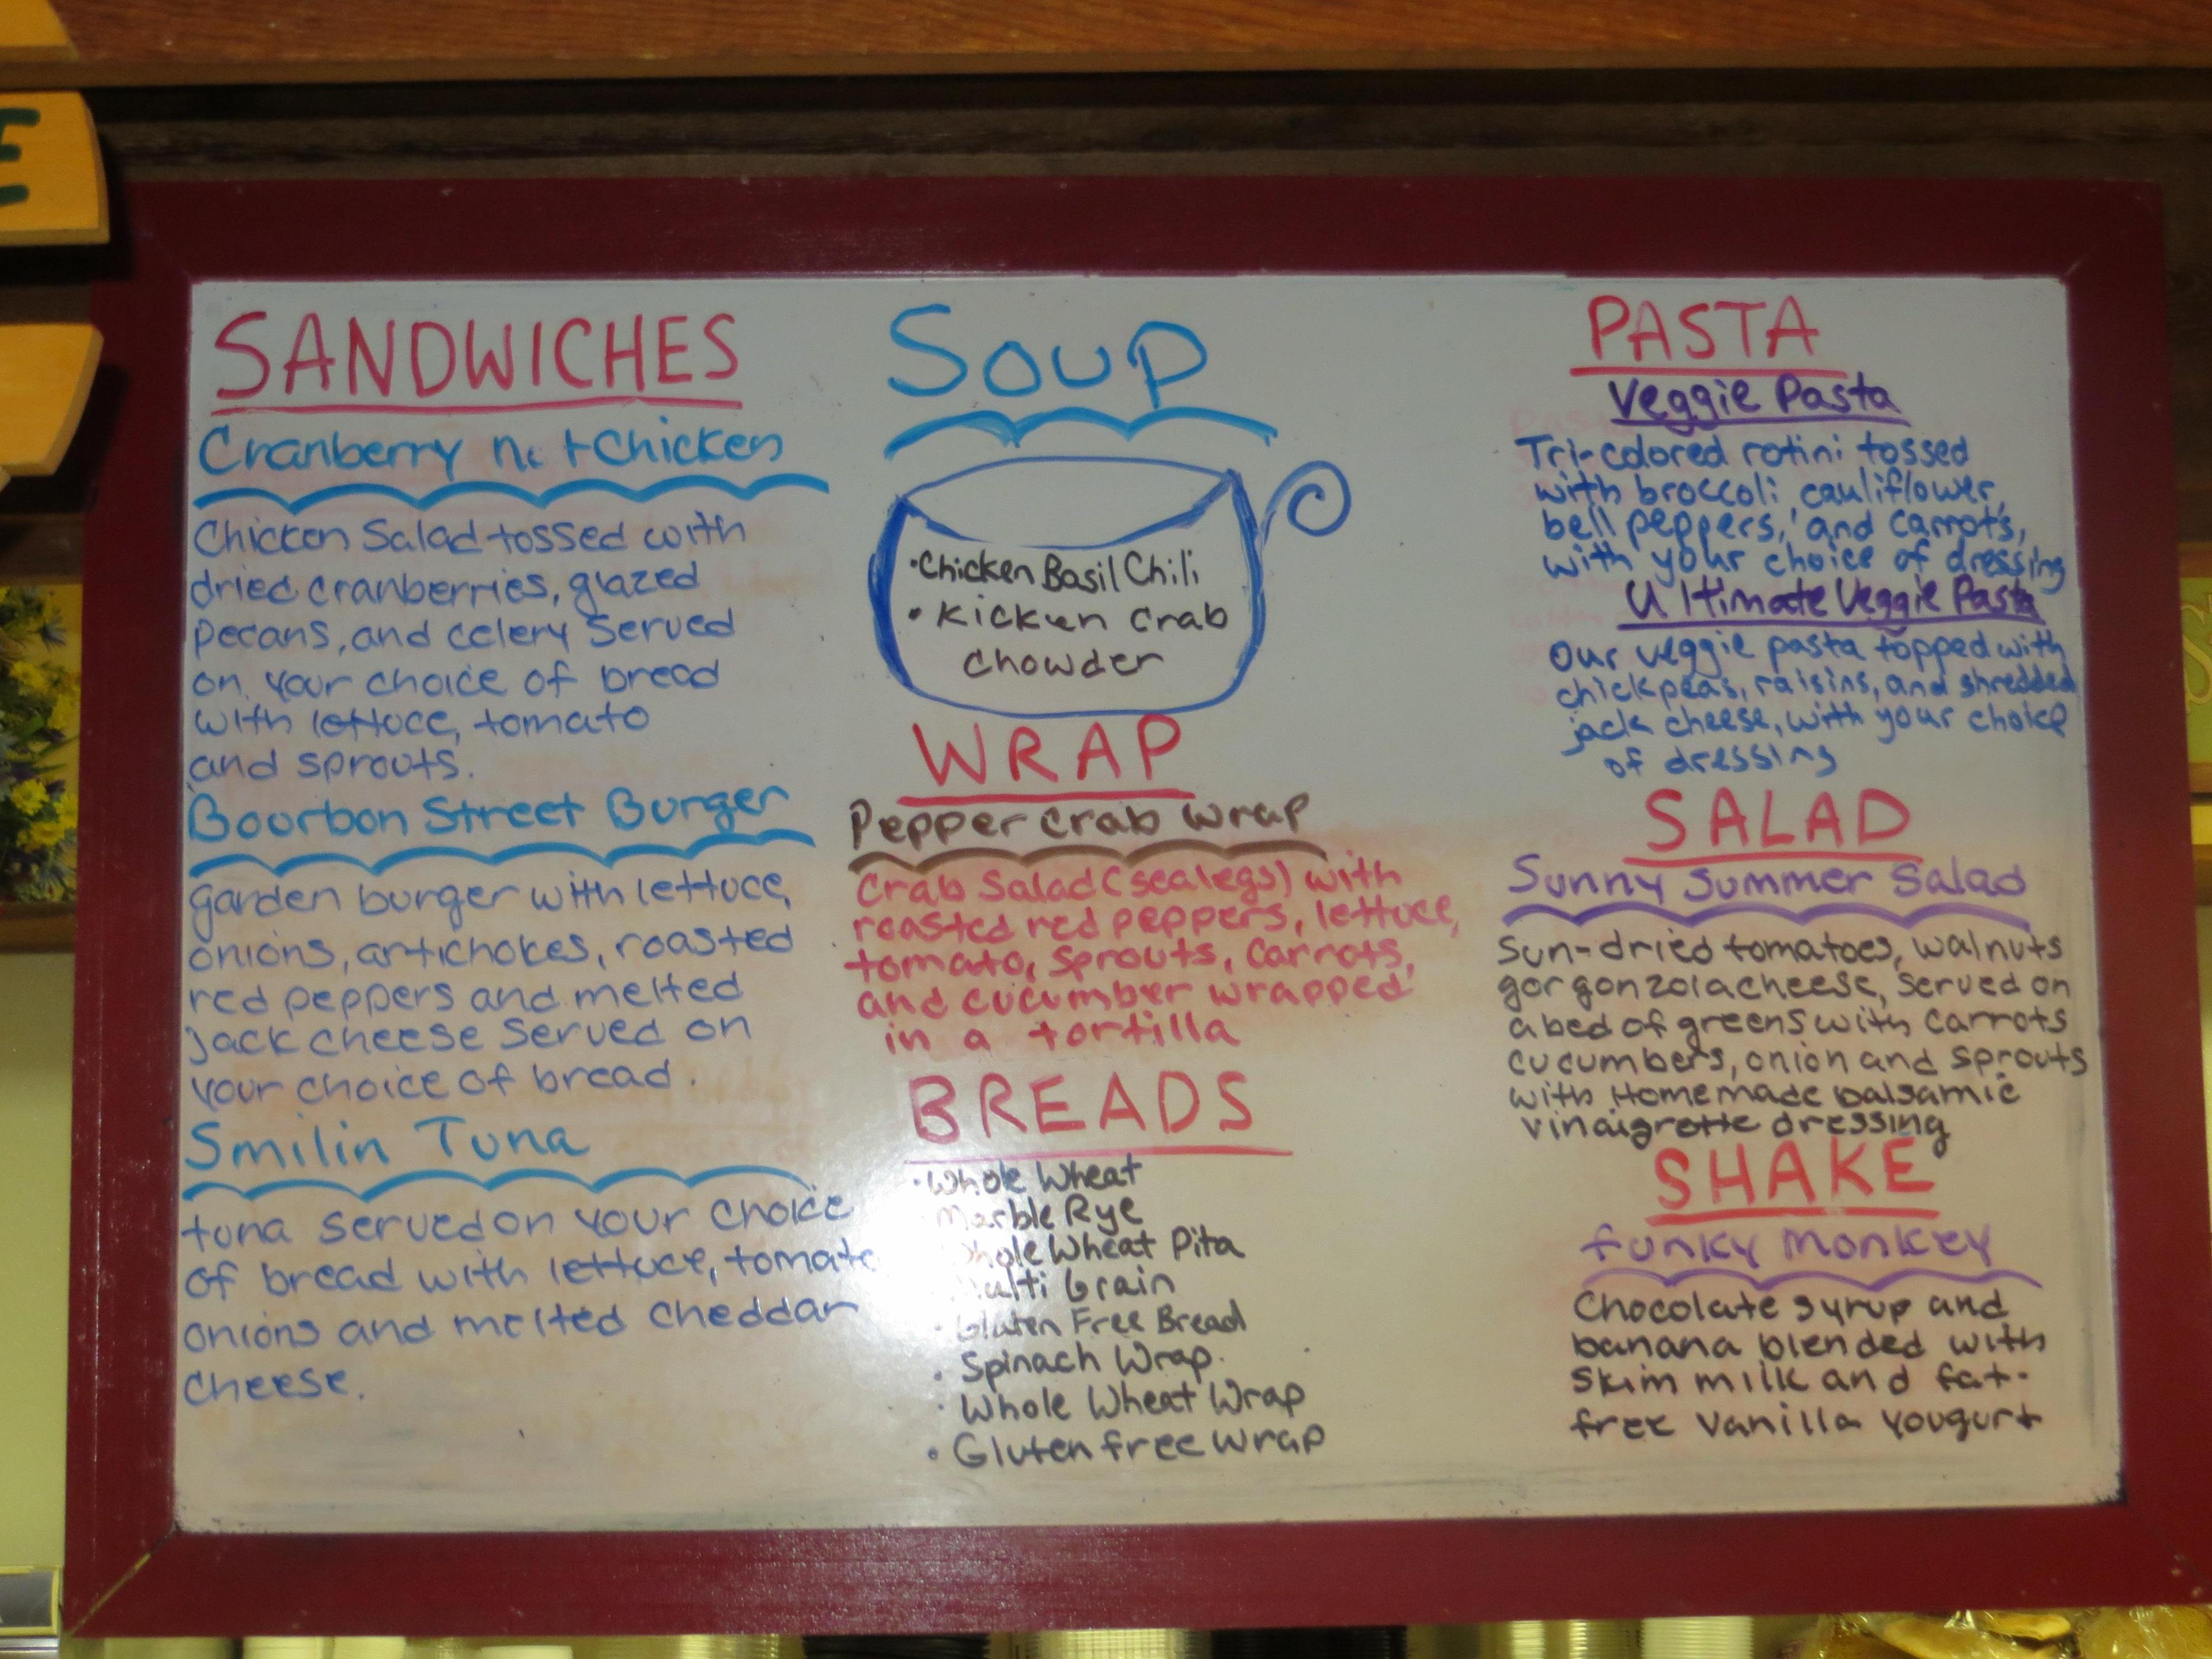 E
SANDWICHES
Cranberry n t Chicken
Chicken Salad tossed with
dried cranberries, glazed
pecans, and celery served
on your choice of bread
with lettuce, tomato
and sprouts.
Bourbon Street Burger
garden burger with lettuce,
onions, artichokes, roasted
red peppers and melted
jack cheese served on
your choice of bread.
Smilin Tuna
tuna served on your choice
of bread with lettuce, tomato
onions and melted cheddar
cheese.
Soup
•Chicken Basil Chili
• Kicken Crab
Chowder
WRAP
Pepper Crab Wrap
Crab Salad (sealegs) with
roasted red peppers, lettuce,
tomato, sprouts, carrots,
and cucumber wrapped
in a tortilla
BREADS
•Whole Wheat
Marble Rye
Whole Wheat Pita
Multi Grain
• Gluten Free Bread
• Spinach Wrap.
• Whole Wheat Wrap
• Gluten free wrap
PASTA
Veggie Pasta
Tri-colored rotini tossed
with broccoli, cauliflower,
bell peppers, and carrots,
with your choice of dressing
Ultimate Veggie Pasta
Our veggie pasta topped with
chickpeas, raisins, and shredded
jack cheese, with your choice
of dressing
SALAD
Sunny Summer Salad
Sun-dried tomatoes, walnuts
gorgonzola cheese, served on
a bed of greens with carrots
cucumbers, onion and sprouts
with Homemade balsamic
vinaigrette dressing
SHAKE
funky monkey
Chocolate syrup and
banana blended with
skim milk and fat-
free vanilla yougurt